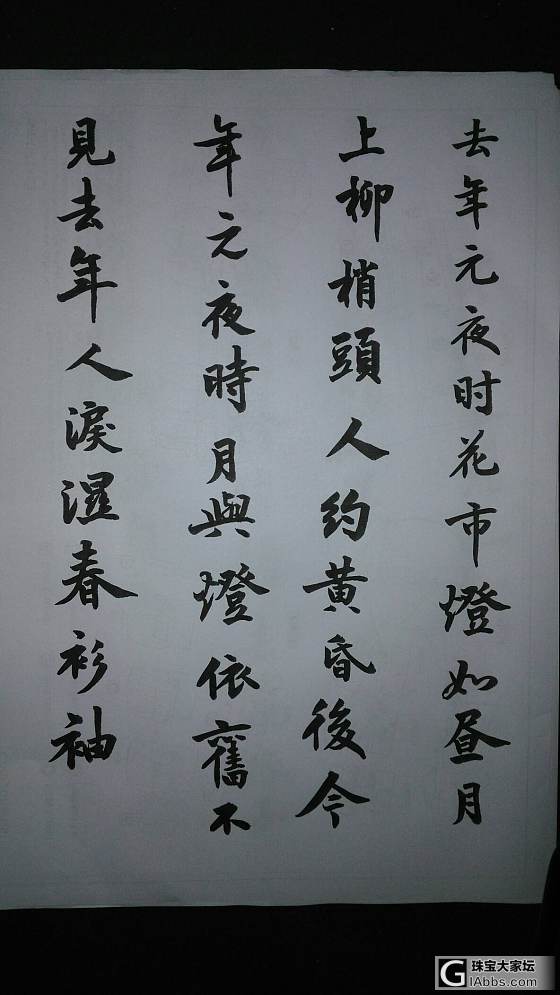 去年元夜时花市燈如昼月
上柳梢頭人約黄昏後今
年元夜時月與燈依舊不
見去年人淚濕春衫袖
珠宝大家坛
GIAbbs.com